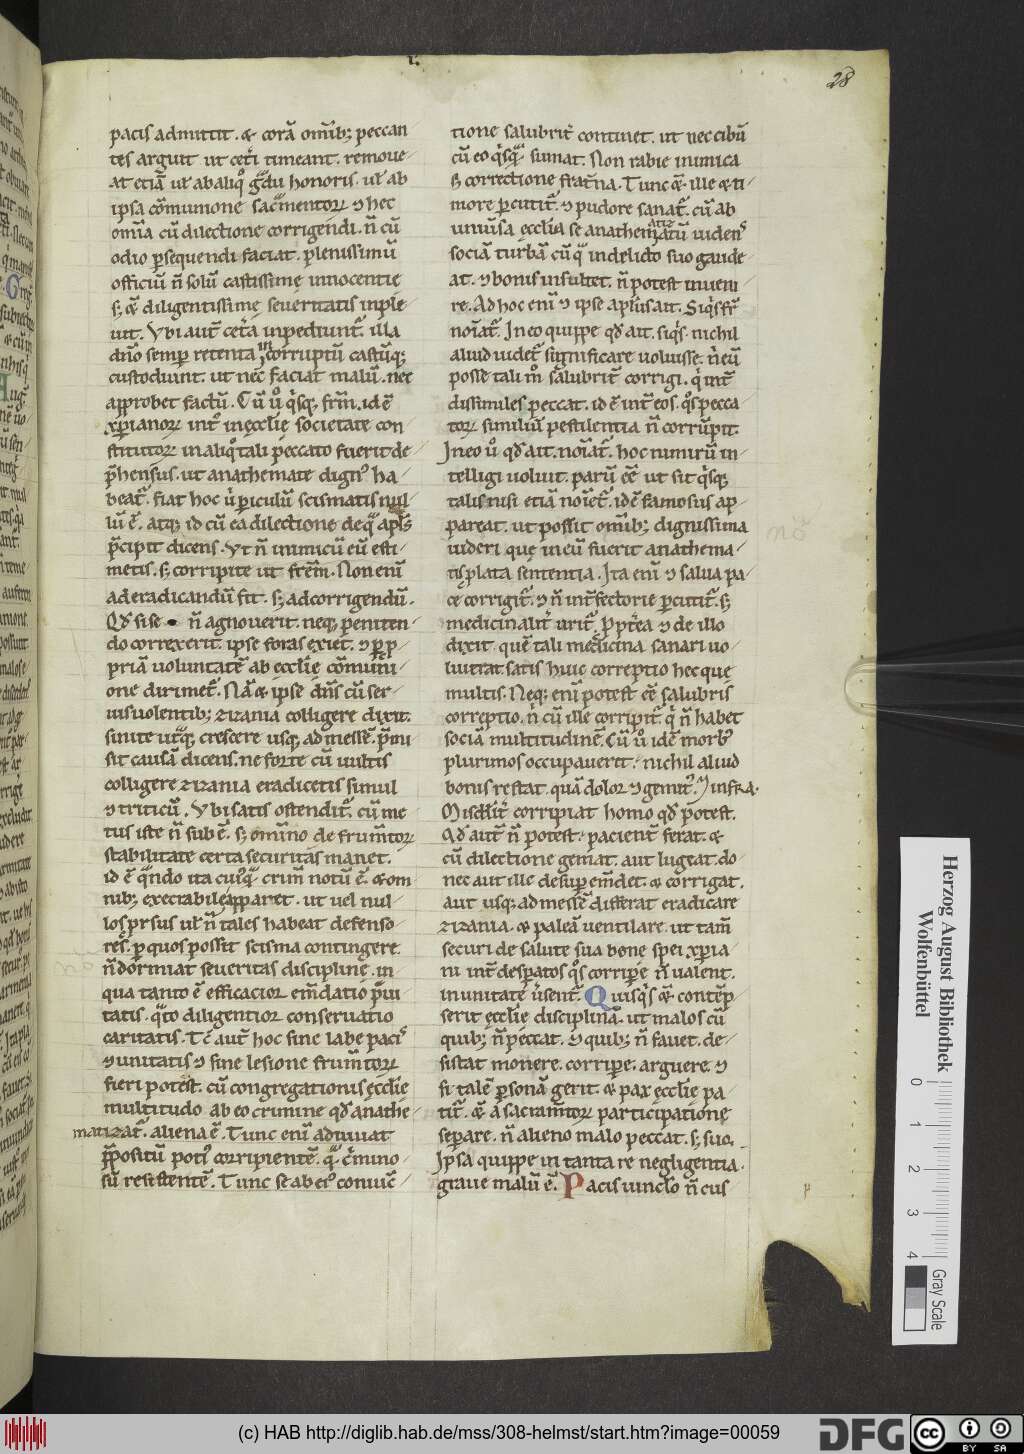 28
pacis admittit. & corā om̄ib; peccan
tes arguit ut cet̄i timeant. remoue-
at etiā ul̄ ab aliqͦ g̃du honoris. ul̄ ab
ipsa cōmunione sac̃mentoꝝ ⁊ hec
om̄ia cū dilectione corrigendi. n̄ cū
odio ꝑsequendi faciat. plenissimū
officiū n̄ solū castissimę innocentię
s; & diligentissimę seueritatis inple-
uit. Vbi aut̄ cet̄a inpediunt̄. illa
duo semꝑ retenta incorruptū castūq;
custodiunt. ut nec faciat malū. nec
approbet factū. Cū ůͦ qͥsq; frm̄. id ē
xp̄ianoꝝ int̄ in ęcclię societate con-
stitutoꝝ in aliqͦ tali peccato fuerit de-
p̄hensus. ut anathemate dignꝰ ha-
beat̄. fiat hoc u̇ ꝑiculū scismatis nul-
lū ē. atq; id cū ea dilectione de qͣ apl̄s
p̄cipit dicens. Vt n̄ inimicū eū esti-
metis. s; corripite ut frēm. Non enī
ad eradicandū fit. s; ad corrigendū.
Qd̄ si se n̄ agnouerit. neq; peniten-
do correxerit. ipse foras exiet. ⁊ ꝑ ꝓ-
priā uoluntatē ab ęcclię cōmuni-
one dirimet̄. Nā & ipse dn̄s cū ser-
uis uolentib; zizania colligere dixit.
sinite utͣq; crescere usq; ad messē. p̄mi
sit causā dicens. ne forte cū uultis
colligere zizania eradicetis simul
⁊ triticū. Vbi satis ostendit̄. cū me-
tus iste n̄ sub ē. s; om̄ino de frum̄toꝝ
stabilitate certa securitas manet.
id ē qͣndo ita cuiꝰqͣ crim̄ notū ē. & om-
nib; execrabile apparet. ut uel nul-
los prsus ul̄ n̄ tales habeat defenso-
res. ꝑ quos possit scisma contingere.
n̄ dormiat seueritas disciplinę. in
qua tanto ē efficacior em̄datio p̄ui
tatis. qͣto diligentior conseruatio
caritatis. Tc̄ aut̄ hoc sine labe pacis
⁊ unitatis ⁊ sine lesione frum̄toꝝ
fieri potest. cū congregationis ęcclię
multitudo ab eo crimine qd̄ anathe-
matizat̄. aliena ē. Tunc enī adiuuat
p̄positū potiꝰ corripientē. qͣ c̄mino-
sū resistentē. Tunc se ab eiꝰ coniūc-
tione salubrit̄ continet. ut nec cibū
cū eo qͥsqͣ sumat. Non rabie inimica
s; correctione frat̄na. Tunc & ille & ti-
more ꝑcutit̄. ⁊ pudore sanat̄. cū ab
uniůsa ęcclia se anathematizatū uidens
sociā turbā cū qͣ in delicto suo gaude-
at. ⁊ bonis insultet. n̄ potest inueni-
re. Ad hoc enī ⁊ ipse aplus ait. Siqͥs fr̄
noīat̄. In eo quippe qd̄ ait. siqͥs. nichil
aliud uidet̄ significare uoluisse. n̄ eū
posse tali mͦ salubrit̄ corrigi. qͥ int̄
dissimiles peccat. id ē int̄ eos. qͦs pecca-
toꝝ similiū pestilentia n̄ corrūpit.
In eo ůͦ qd̄ ait. noīat̄. hoc nimirū in-
telligi uoluit. parū eē ut sit qͥsq;
talis nisi etiā noīet̄. id ē famosus ap-
pareat. ut possit om̄ib; dignissima
uideri quę in eū fuerit anathema-
tis plata sententia. Ita enī ⁊ salua pa-
ce corrigit̄. ⁊ n̄ int̄fectorie ꝑcutit̄. s;
medicinalit̄ urit̄. ꝓpt̄ea ⁊ de illo
dixit. quē tali medicina sanari uo-
luerat. satis huic correptio hec que
multis. Neq; enī potest eē salubris
correptio. n̄ cū ille corripit̄. qͥ n̄ habet
sociā multitudinē. Cū ůͦ idē morbꝰ
plurimos occupauerit. nichil aliud
bonis restat. quā dolor ⁊ gemitꝰ. infra.
Misc̄dit̄ corripiat homo qd̄ potest.
Qd̄ aut̄ n̄ potest. pacient̄ ferat. &
cū dilectione gemat. aut lugeat. do-
nec aut ille desuꝑ em̄det. & corrigat.
aut usq; ad messē differat eradicare
zizania. & paleā uentilare. ut tam̄
securi de salute sua bone spei xp̄ia-
ni int̄ despatos qͦs corripe n̄ ualent.
in unitate ůsent̄. Quisqͥs & contēp-
serit ęcclię disciplinā. ut malos cū
quib; n̄ peccat. ⁊ quib; n̄ fauet. de-
sistat monere. corripe. arguere. ⁊
si talē ꝑsonā gerit. & pax ęcclię pa-
tit̄. & a sacram̄toꝝ participatione
separe. n̄ alieno malo peccat. s; suo.
Ipsa quippe in tanta re negligentia.
graue malū ē. Pacis uinclo n̄ cus
Herzog August Bibliothek
Wolfenbüttel
0 1 2 3 4
Gray Scale
(c) HAB http://diglib.hab.de/mss/308-helmst/start.htm?image=00059
DFG
cc BY SA